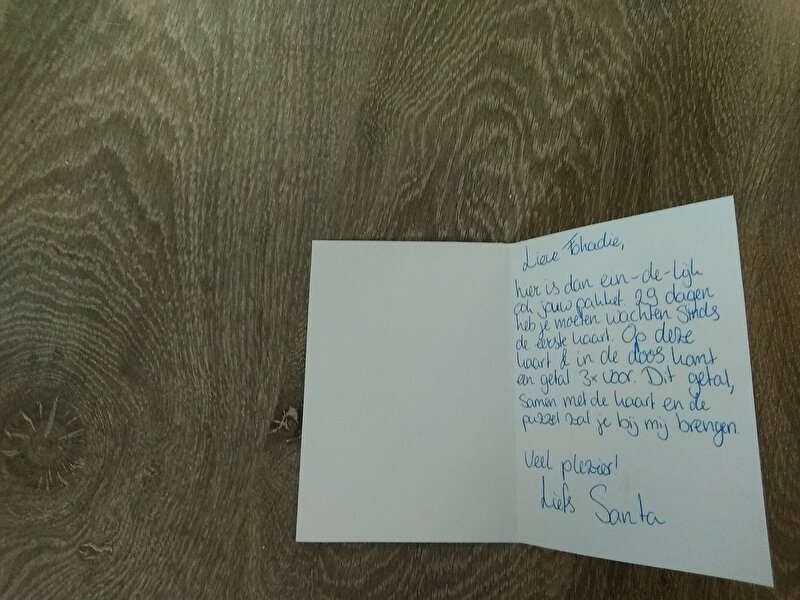 Lieve Fohadie,
hier is dan ein-de-lijk
ook jouw pakket. 29 dagen
heb je moeten wachten sinds
de eerste kaart. Op deze
kaart & in de doos komt
een getal 3x voor. Dit getal,
samen met de kaart en de
puzzel zal je bij mij brengen.
Veel plezier!
Liefs Santa